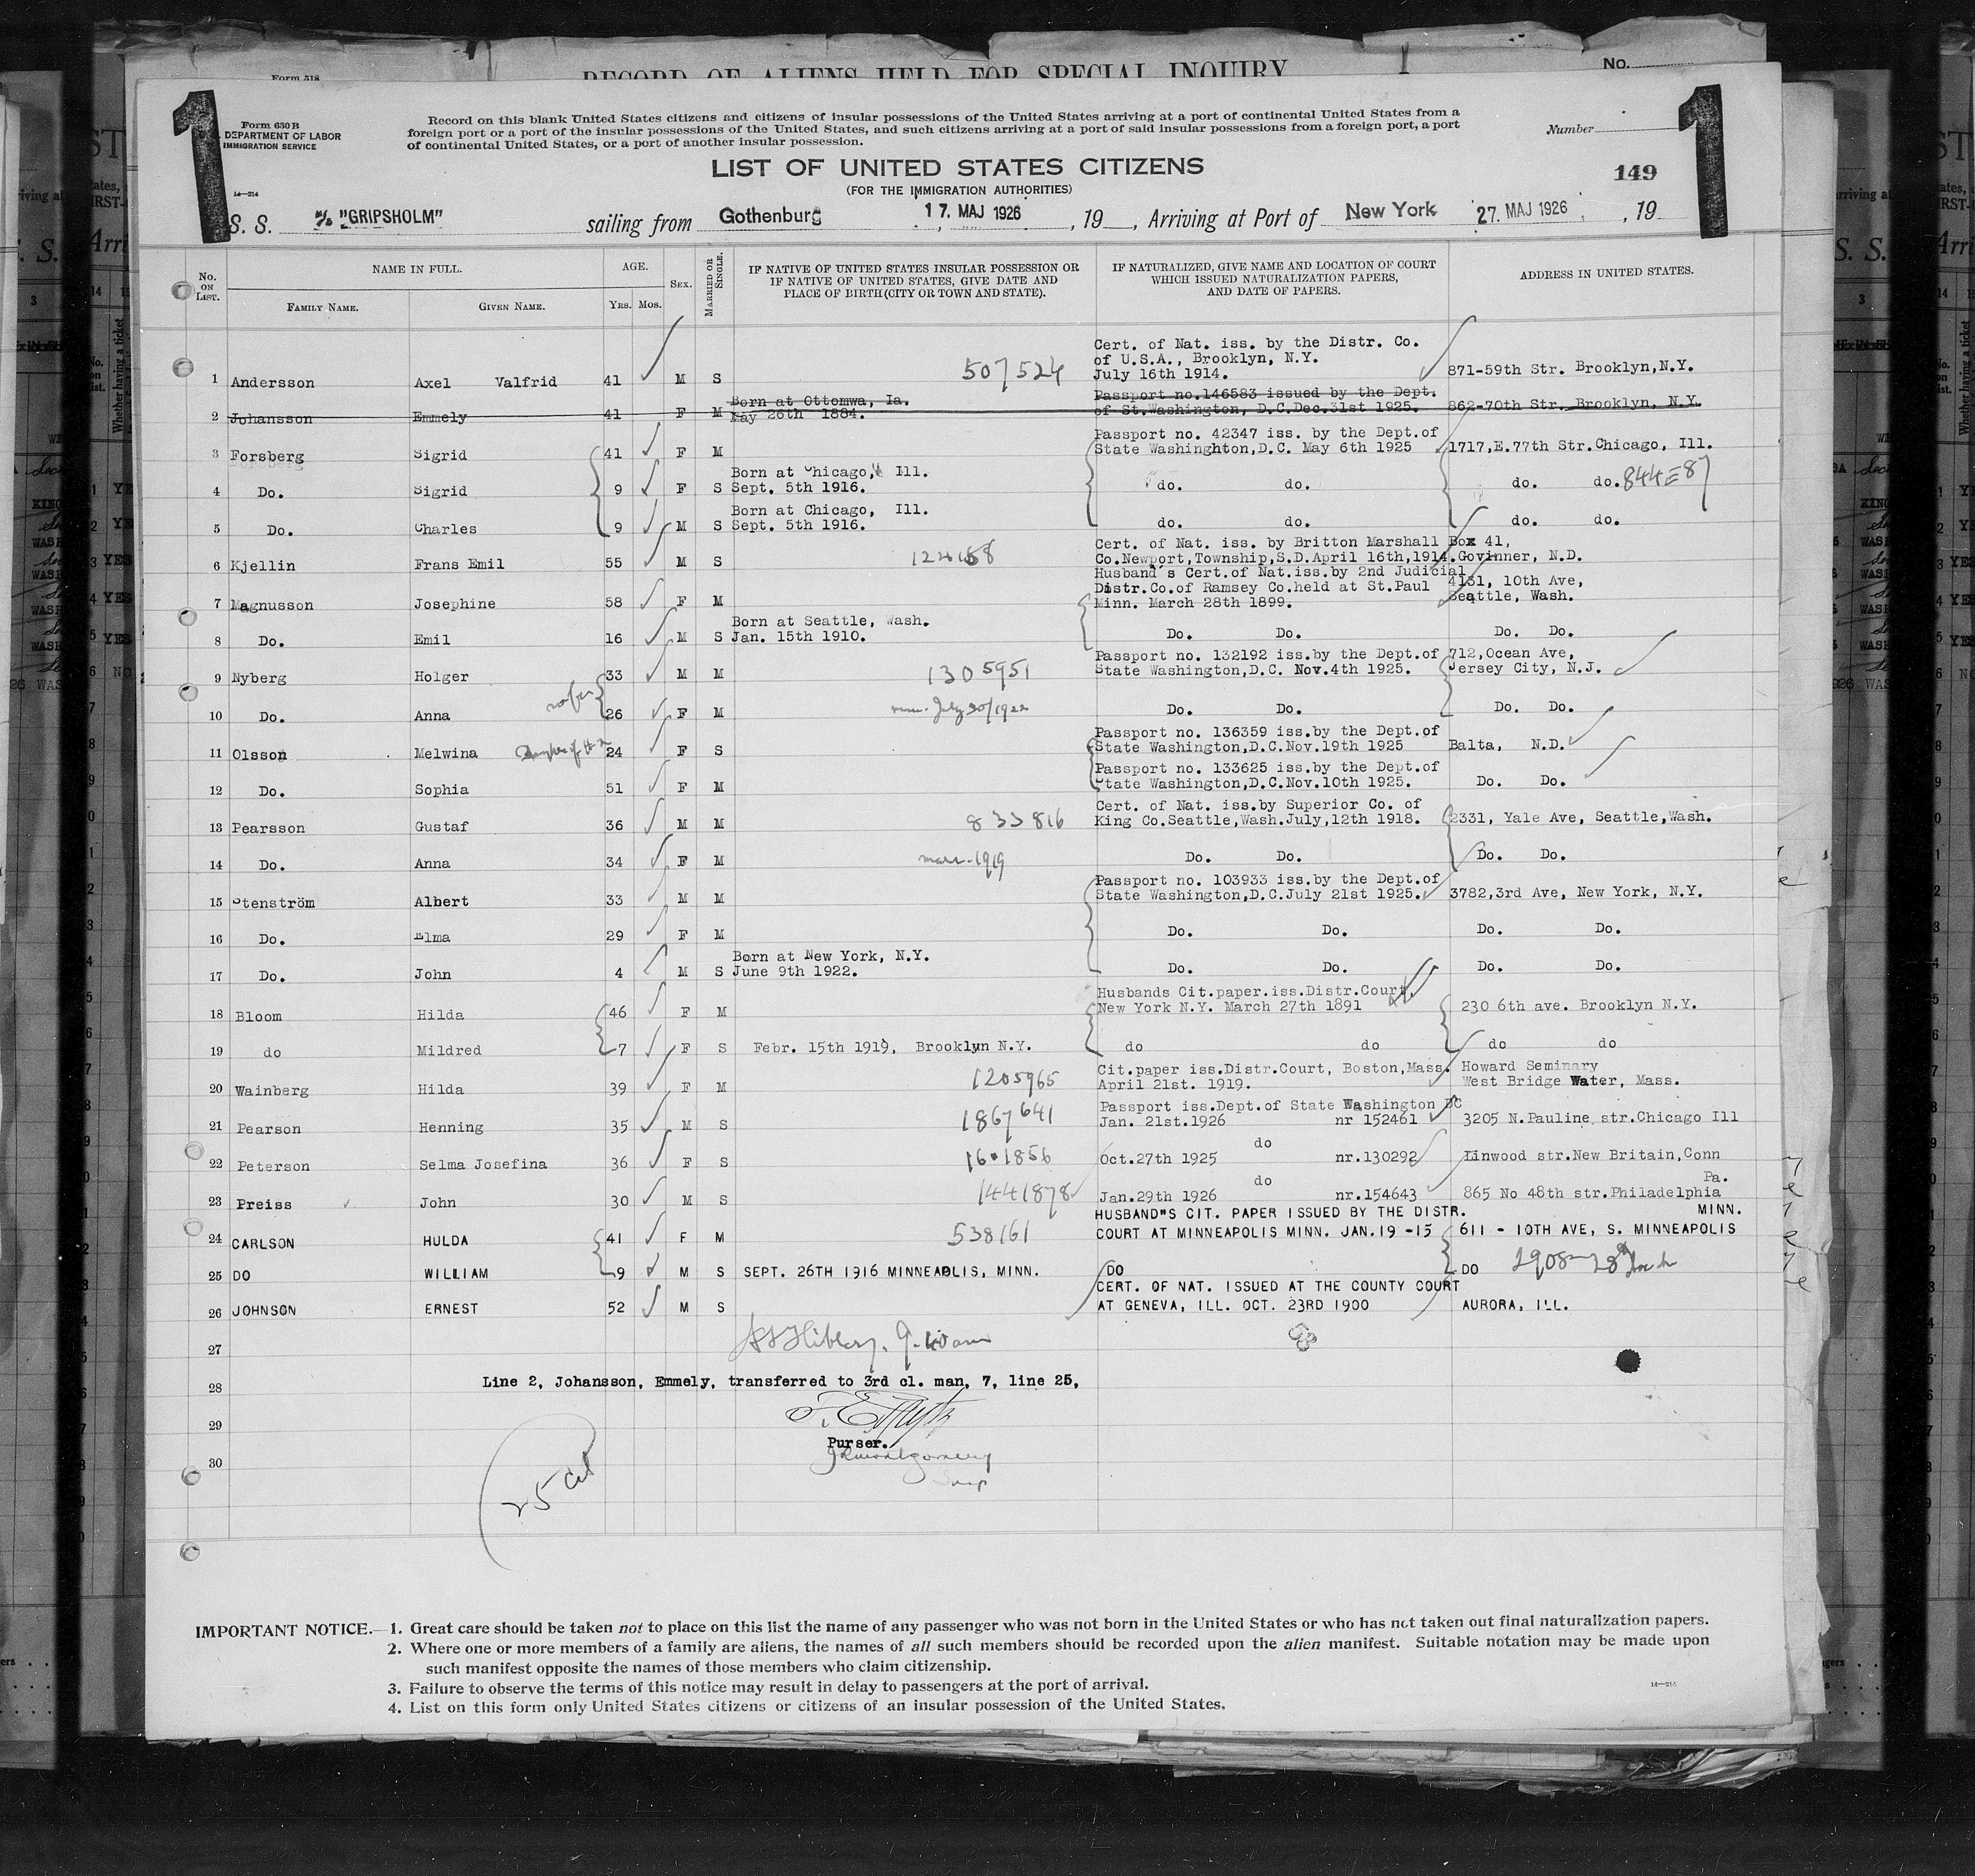 Form 518
RECORD OF ALIENS HELD FOR SPECIAL INQUIRY
No.
1
1
Form 630 B
DEPARTMENT OF LABOR
IMMIGRATION SERVICE
14—214
Record on this blank United States citizens and citizens of insular possessions of the United States arriving at a port of continental United States from a
foreign port or a port of the insular possessions of the United States, and such citizens arriving at a port of said insular possessions from a foreign port, a port
of continental United States, or a port of another insular possession.
Number
LIST OF UNITED STATES CITIZENS
(FOR THE IMMIGRATION AUTHORITIES)
149
S. S. M/S "GRIPSHOLM" sailing from Gothenburg 17. MAJ 1926, 19__, Arriving at Port of New York 27. MAJ 1926, 19
No. ON LIST.
NAME IN FULL.
FAMILY NAME.
GIVEN NAME.
AGE.
YRS. MOS.
SEX.
MARRIED OR SINGLE.
IF NATIVE OF UNITED STATES INSULAR POSSESSION OR
IF NATIVE OF UNITED STATES, GIVE DATE AND
PLACE OF BIRTH (CITY OR TOWN AND STATE).
IF NATURALIZED, GIVE NAME AND LOCATION OF COURT
WHICH ISSUED NATURALIZATION PAPERS,
AND DATE OF PAPERS.
ADDRESS IN UNITED STATES.
Cert. of Nat. iss. by the Distr. Co.
of U.S.A., Brooklyn, N.Y.
1 Andersson Axel Valfrid 41 M S 507524 July 16th 1914. 871-59th Str. Brooklyn,N.Y.
Born at Ottomwa, Ia. Passport no.146583 issued by the Dept.
2 Johansson Emmely 41 F M May 26th 1884. of St.Washington, D.C.Dec.31st 1925. 862-70th Str. Brooklyn, N.Y.
Passport no. 42347 iss. by the Dept.of
3 Forsberg Sigrid 41 F M State Washinghton,D.C. May 6th 1925 1717,E.77th Str.Chicago, Ill.
Born at Chicago, Ill.
4 Do. Sigrid 9 F S Sept. 5th 1916. do. do. do. do. 844E87
Born at Chicago, Ill.
5 Do. Charles 9 M S Sept. 5th 1916. do. do. do. do.
Cert. of Nat. iss. by Britton Marshall Box 41,
6 Kjellin Frans Emil 55 M S Co.Newport,Township,S.D.April 16th,1914. Govinner, N.D.
Husband's Cert.of Nat.iss.by 2nd Judicial
Distr.Co.of Ramsey Co.held at St.Paul 4131, 10th Ave,
7 Magnusson Josephine 58 F M Minn. March 28th 1899. Seattle, Wash.
Born at Seattle, Wash.
8 Do. Emil 16 M S Jan. 15th 1910. Do. Do. Do. Do.
Passport no. 132192 iss.by the Dept.of 712,Ocean Ave,
9 Nyberg Holger 33 M M 1305951 State Washington,D.C. Nov.4th 1925. Jersey City, N.J.
10 Do. Anna 26 F M July 20/1922 Do. Do. Do. Do.
Passport no. 136359 iss.by the Dept.of
11 Olsson Melwina 24 F S State Washington,D.C.Nov.19th 1925 Balta, N.D.
Passport no. 133625 iss.by the Dept.of
12 Do. Sophia 51 F M State Washington,D.C.Nov.10th 1925. Do. Do.
Cert. of Nat. iss.by Superior Co. of
13 Pearsson Gustaf 36 M M 833816 King Co.Seattle,Wash.July,12th 1918. 2331, Yale Ave, Seattle,Wash.
14 Do. Anna 34 F M marr. 1919 Do. Do. Do. Do.
Passport no. 103933 iss.by the Dept.of
15 Stenström Albert 33 M M State Washington,D.C.July 21st 1925. 3782,3rd Ave, New York, N.Y.
16 Do. Elma 29 F M Do. Do. Do. Do.
Born at New York, N.Y.
17 Do. John 4 M S June 9th 1922. Do. Do. Do. Do.
Husbands Cit.paper.iss.Distr.Court.
18 Bloom Hilda 46 F M New York N.Y. March 27th 1891 230 6th ave. Brooklyn N.Y.
19 do Mildred 7 F S Febr. 15th 1919, Brooklyn N.Y. do do do do
Cit.paper iss.Distr.Court, Boston,Mass. Howard Seminary
20 Wainberg Hilda 39 F M 1205965 April 21st. 1919. West Bridge Water, Mass.
Passport iss.Dept.of State Washington DC
21 Pearson Henning 35 M S 1867641 Jan. 21st.1926 nr 152461 3205 N.Pauline str.Chicago Ill
do
22 Peterson Selma Josefina 36 F S Oct.27th 1925 nr.130292 Linwood str.New Britain,Conn
do Pa.
23 Preiss John 30 M S 1441878 Jan.29th 1926 nr.154643 865 No 48th str.Philadelphia
HUSBAND"S CIT. PAPER ISSUED BY THE DISTR. MINN.
24 CARLSON HULDA 41 F M 538161 COURT AT MINNEAPOLIS MINN. JAN.19 -15 611 - 10TH AVE, S. MINNEAPOLIS
25 DO WILLIAM 9 M S SEPT. 26TH 1916 MINNEAOLIS, MINN. DO DO
CERT. OF NAT. ISSUED AT THE COUNTY COURT
26 JOHNSON ERNEST 52 M S AT GENEVA, ILL. OCT. 23RD 1900 AURORA, ILL.
27
28 Line 2, Johansson, Emmely, transferred to 3rd cl. man, 7, line 25,
29
Purser.
30
25 cit
IMPORTANT NOTICE.—1. Great care should be taken not to place on this list the name of any passenger who was not born in the United States or who has not taken out final naturalization papers.
2. Where one or more members of a family are aliens, the names of all such members should be recorded upon the alien manifest. Suitable notation may be made upon
such manifest opposite the names of those members who claim citizenship.
3. Failure to observe the terms of this notice may result in delay to passengers at the port of arrival.
4. List on this form only United States citizens or citizens of an insular possession of the United States.
14—214